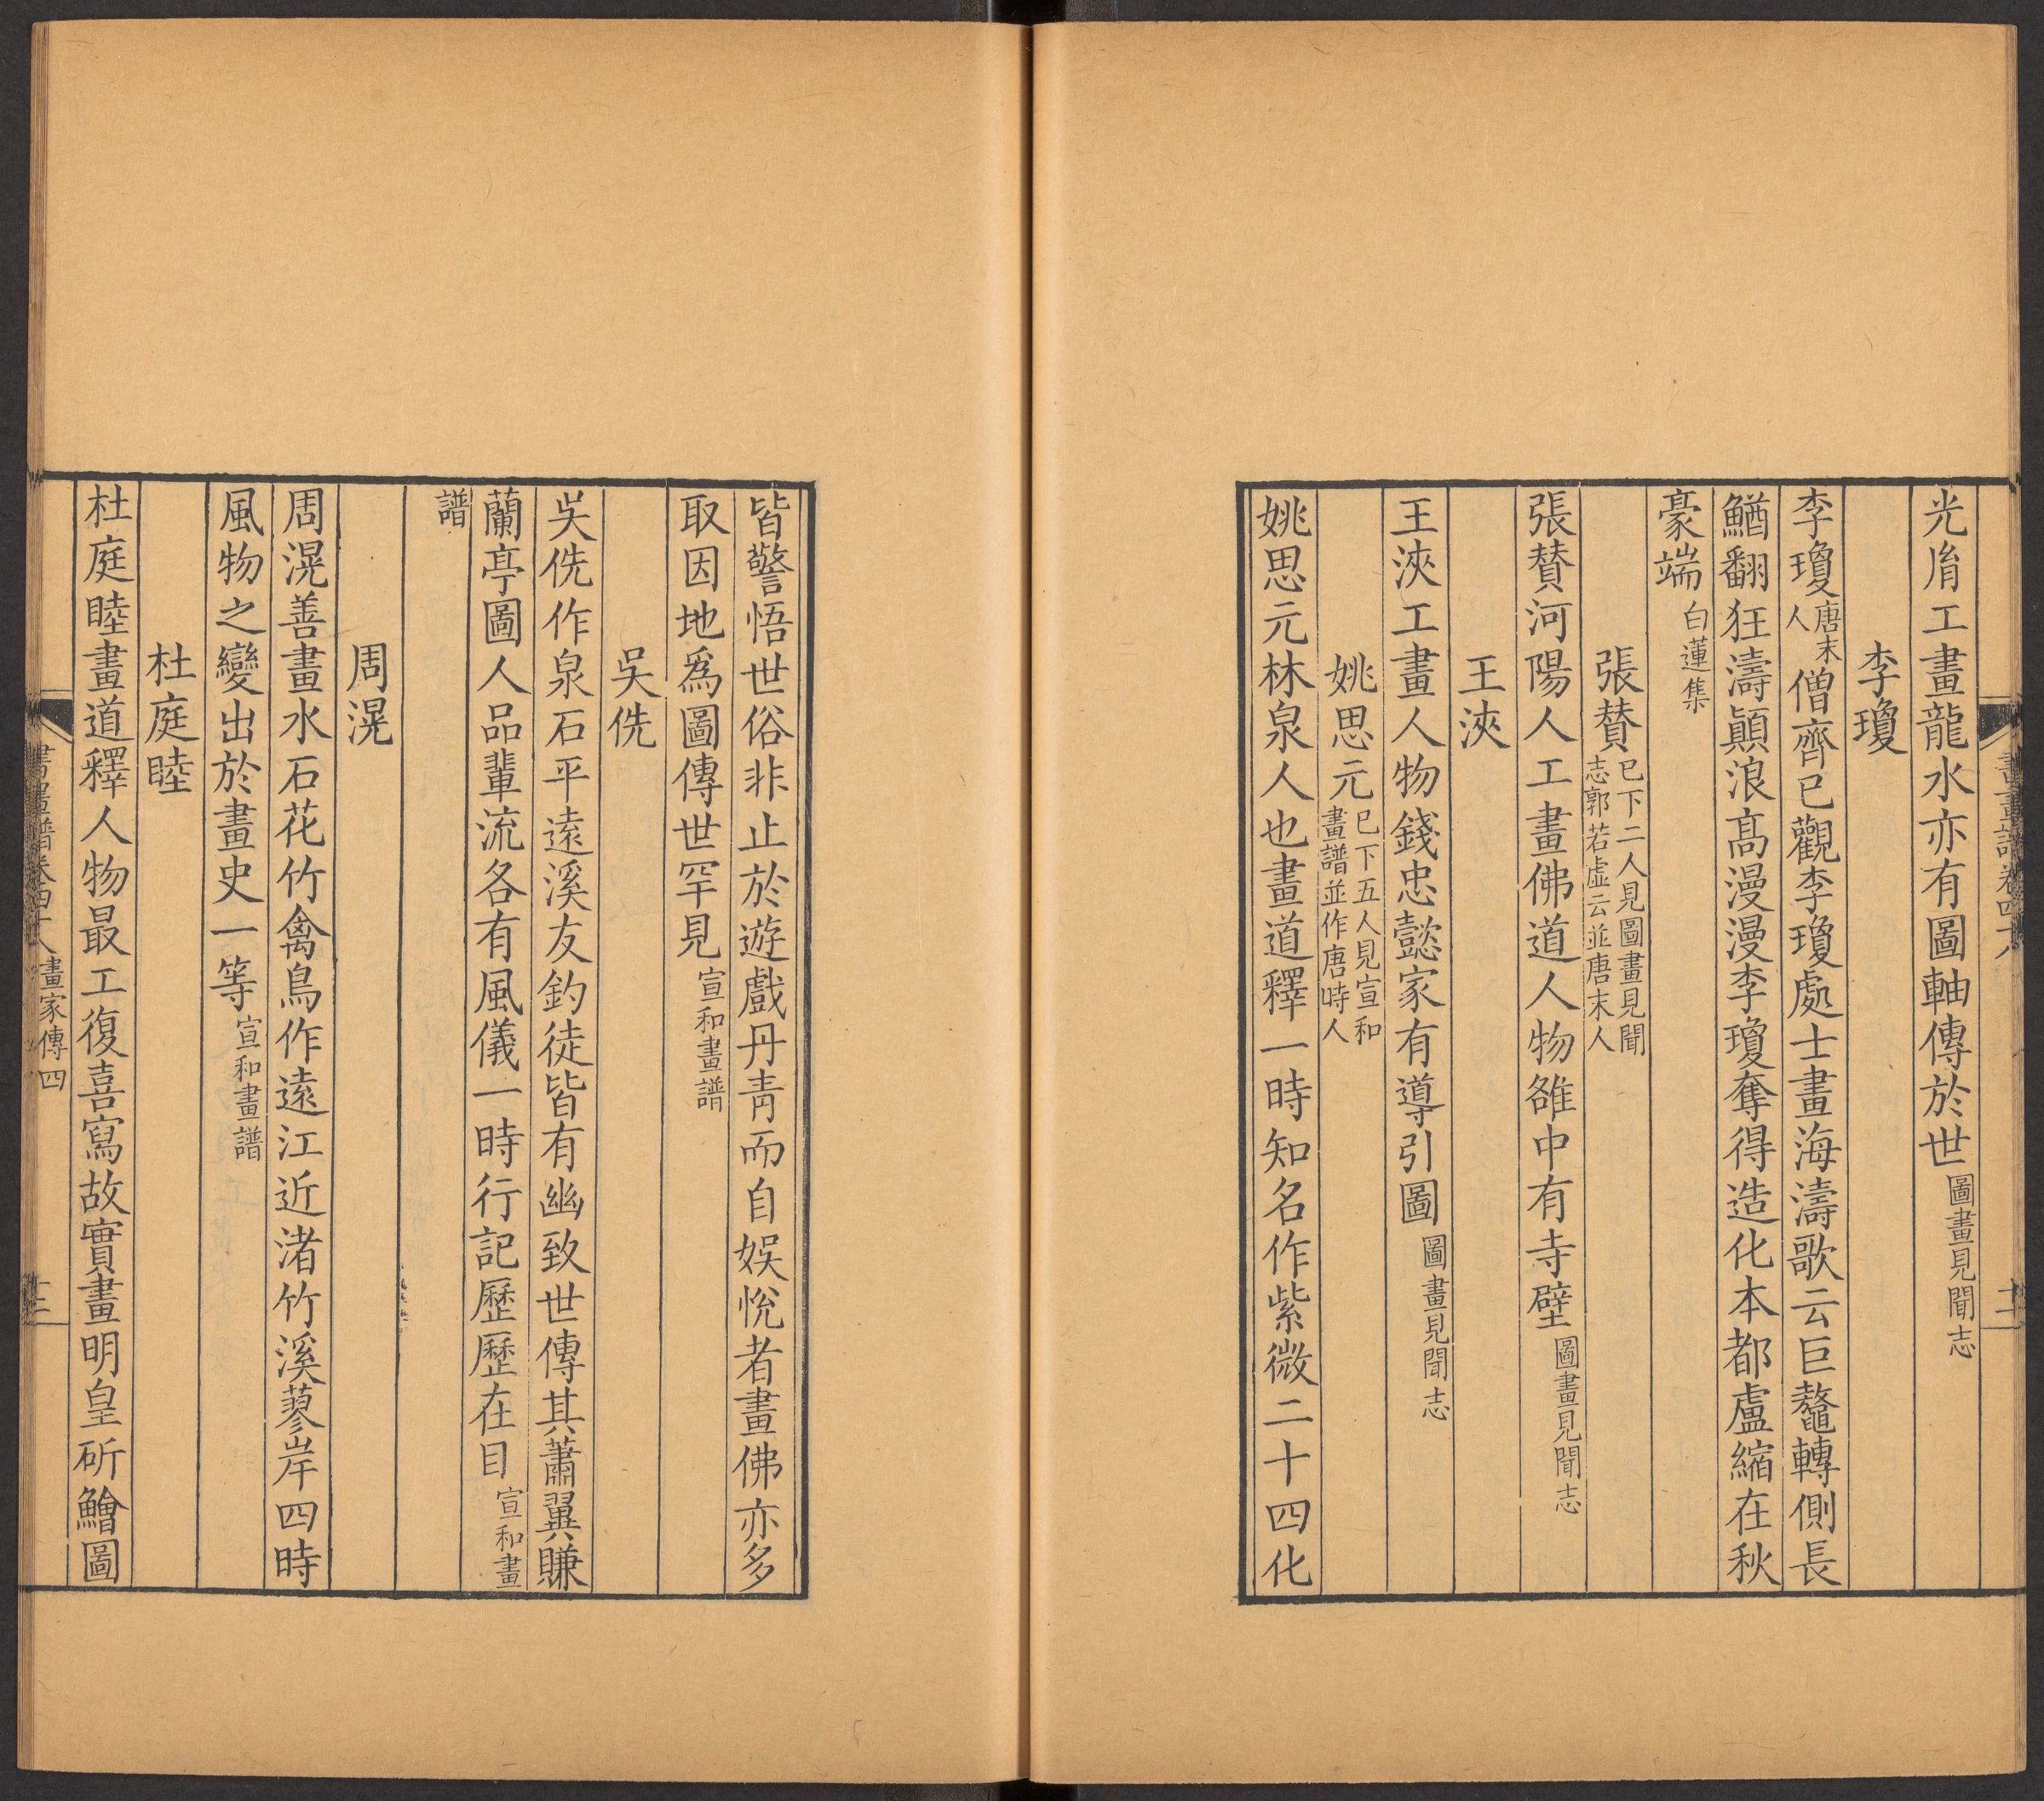 光胤工畫龍水亦有圖軸傳於世圖畫見聞志
李瓊
李瓊唐末人僧齊已觀李瓊處士畫海濤歌云巨鼇轉側長
鰌翻狂濤顛浪高漫漫李瓊奪得造化本都盧縮在秋
豪端白蓮集
張贊已下二人見圖畫見聞志郭若虛云並唐末人
張贊河陽人工畫佛道人物雒中有寺壁圖畫見聞志
王浹
王浹工畫人物錢忠懿家有導引圖圖畫見聞志
姚思元已下五人見宣和畫譜並作唐時人
姚思元林泉人也畫道釋一時知名作紫微二十四化
皆警悟世俗非止於遊戲丹青而自娛悅者畫佛亦多
取因地爲圖傳世罕見宣和畫譜
吳侁
吳侁作泉石平遠溪友釣徒皆有幽致世傳其蕭翼賺
蘭亭圖人品輩流各有風儀一時行記歷歷在目宣和畫
譜
周滉
周滉善畫水石花竹禽鳥作遠江近渚竹溪蓼岸四時
風物之變出於畫史一等宣和畫譜
杜庭睦
杜庭睦畫道釋人物最工復喜寫故實畫明皇斫鱠圖
書畫譜卷四十八 畫家傳四